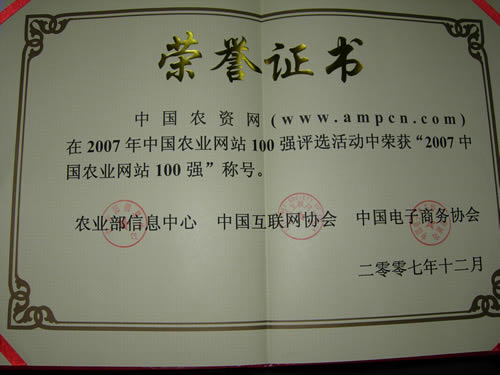 荣誉证书
中国农资网(www.ampcn.com)
在2007年中国农业网站100强评选活动中荣获“2007中
国农业网站100强”称号。
农业部信息中心 中国互联网协会 中国电子商务协会
二零零七年十二月